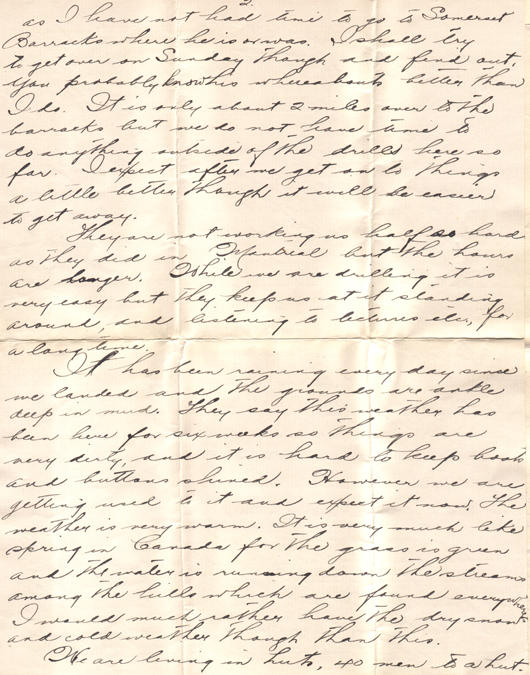 2.
as I have not had time to go to Somerset
Barracks where he is or was. I shall try
to get over on Sunday though and find out.
You probably know his whereabouts better than
I do. It is only about 2 miles over to the
barracks but we do not have time to
do anything outside of the drills here so
far. I expect after we get on to things
a little better though it will be easier
to get away.
They are not working us half so hard
as they did in Montreal but the hours
are longer. While we are drilling it is
very easy but they keep us at it standing
around, and listening to lectures etc, for
a long time.
It has been raining every day since
we landed and the grounds are ankle
deep in mud. They say this weather has
been here for six weeks so things are
very dirty, and it is hard to keep boots
and buttons shined. However we are
getting used to it and expect it now. The
weather is very warm. It is very much like
spring in Canada for the grass is green
and the water is running down the streams
among the hills which are found everywhere
I would much rather have the dry snow
and cold weather though than this.
We are living in huts, 40 men to a hut.